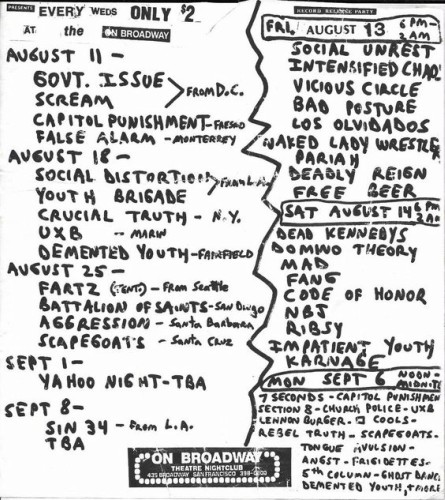 PRESENTS EVERY WEDS ONLY $2
AT the ON BROADWAY
AUGUST 11 -
GOVT. ISSUE
SCREAM
FROM D.C.
CAPITOL PUNISHMENT - FRESNO
FALSE ALARM - MONTERREY
AUGUST 18 -
SOCIAL DISTORTION
YOUTH BRIGADE
FROM L.A.
CRUCIAL TRUTH - N.Y.
UXB - MARIN
DEMENTED YOUTH - FAIRFIELD
AUGUST 25 -
FARTZ (TENT.) - From Seattle
BATTALION OF SAINTS - SAN DIEGO
AGGRESSION - Santa Barbara
SCAPEGOATS - Santa Cruz
SEPT 1 -
YAHOO NIGHT - TBA
SEPT 8 -
SIN 34 - From L.A.
TBA
RECORD RELEASE PARTY
FRI. AUGUST 13 6PM - 2AM
SOCIAL UNREST
INTENSIFIED CHAOS
VICIOUS CIRCLE
BAD POSTURE
LOS OLVIDADOS
NAKED LADY WRESTLE
PARIAH
DEADLY REIGN
FREE BEER
SAT AUGUST 14 6PM 2AM
DEAD KENNEDYS
DOMINO THEORY
MAD
FANG
CODE OF HONOR
NBJ
RIBSY
IMPATIENT YOUTH
KARNAGE
MON SEPT 6 NOON - MIDNITE
7 SECONDS - CAPITOL PUNISHMEN
SECTION 8 - CHURCH POLICE - UXB
LENNON BURGER - COOLS -
REBEL TRUTH - SCAPEGOATS -
TONGUE AVULSION -
ANGST - FRIGIDETTES -
5th COLUMN - GHOST DANCE
DEMENTED YOUTH, + MORE
ON BROADWAY
THEATRE NIGHTCLUB
435 BROADWAY SAN FRANCISCO